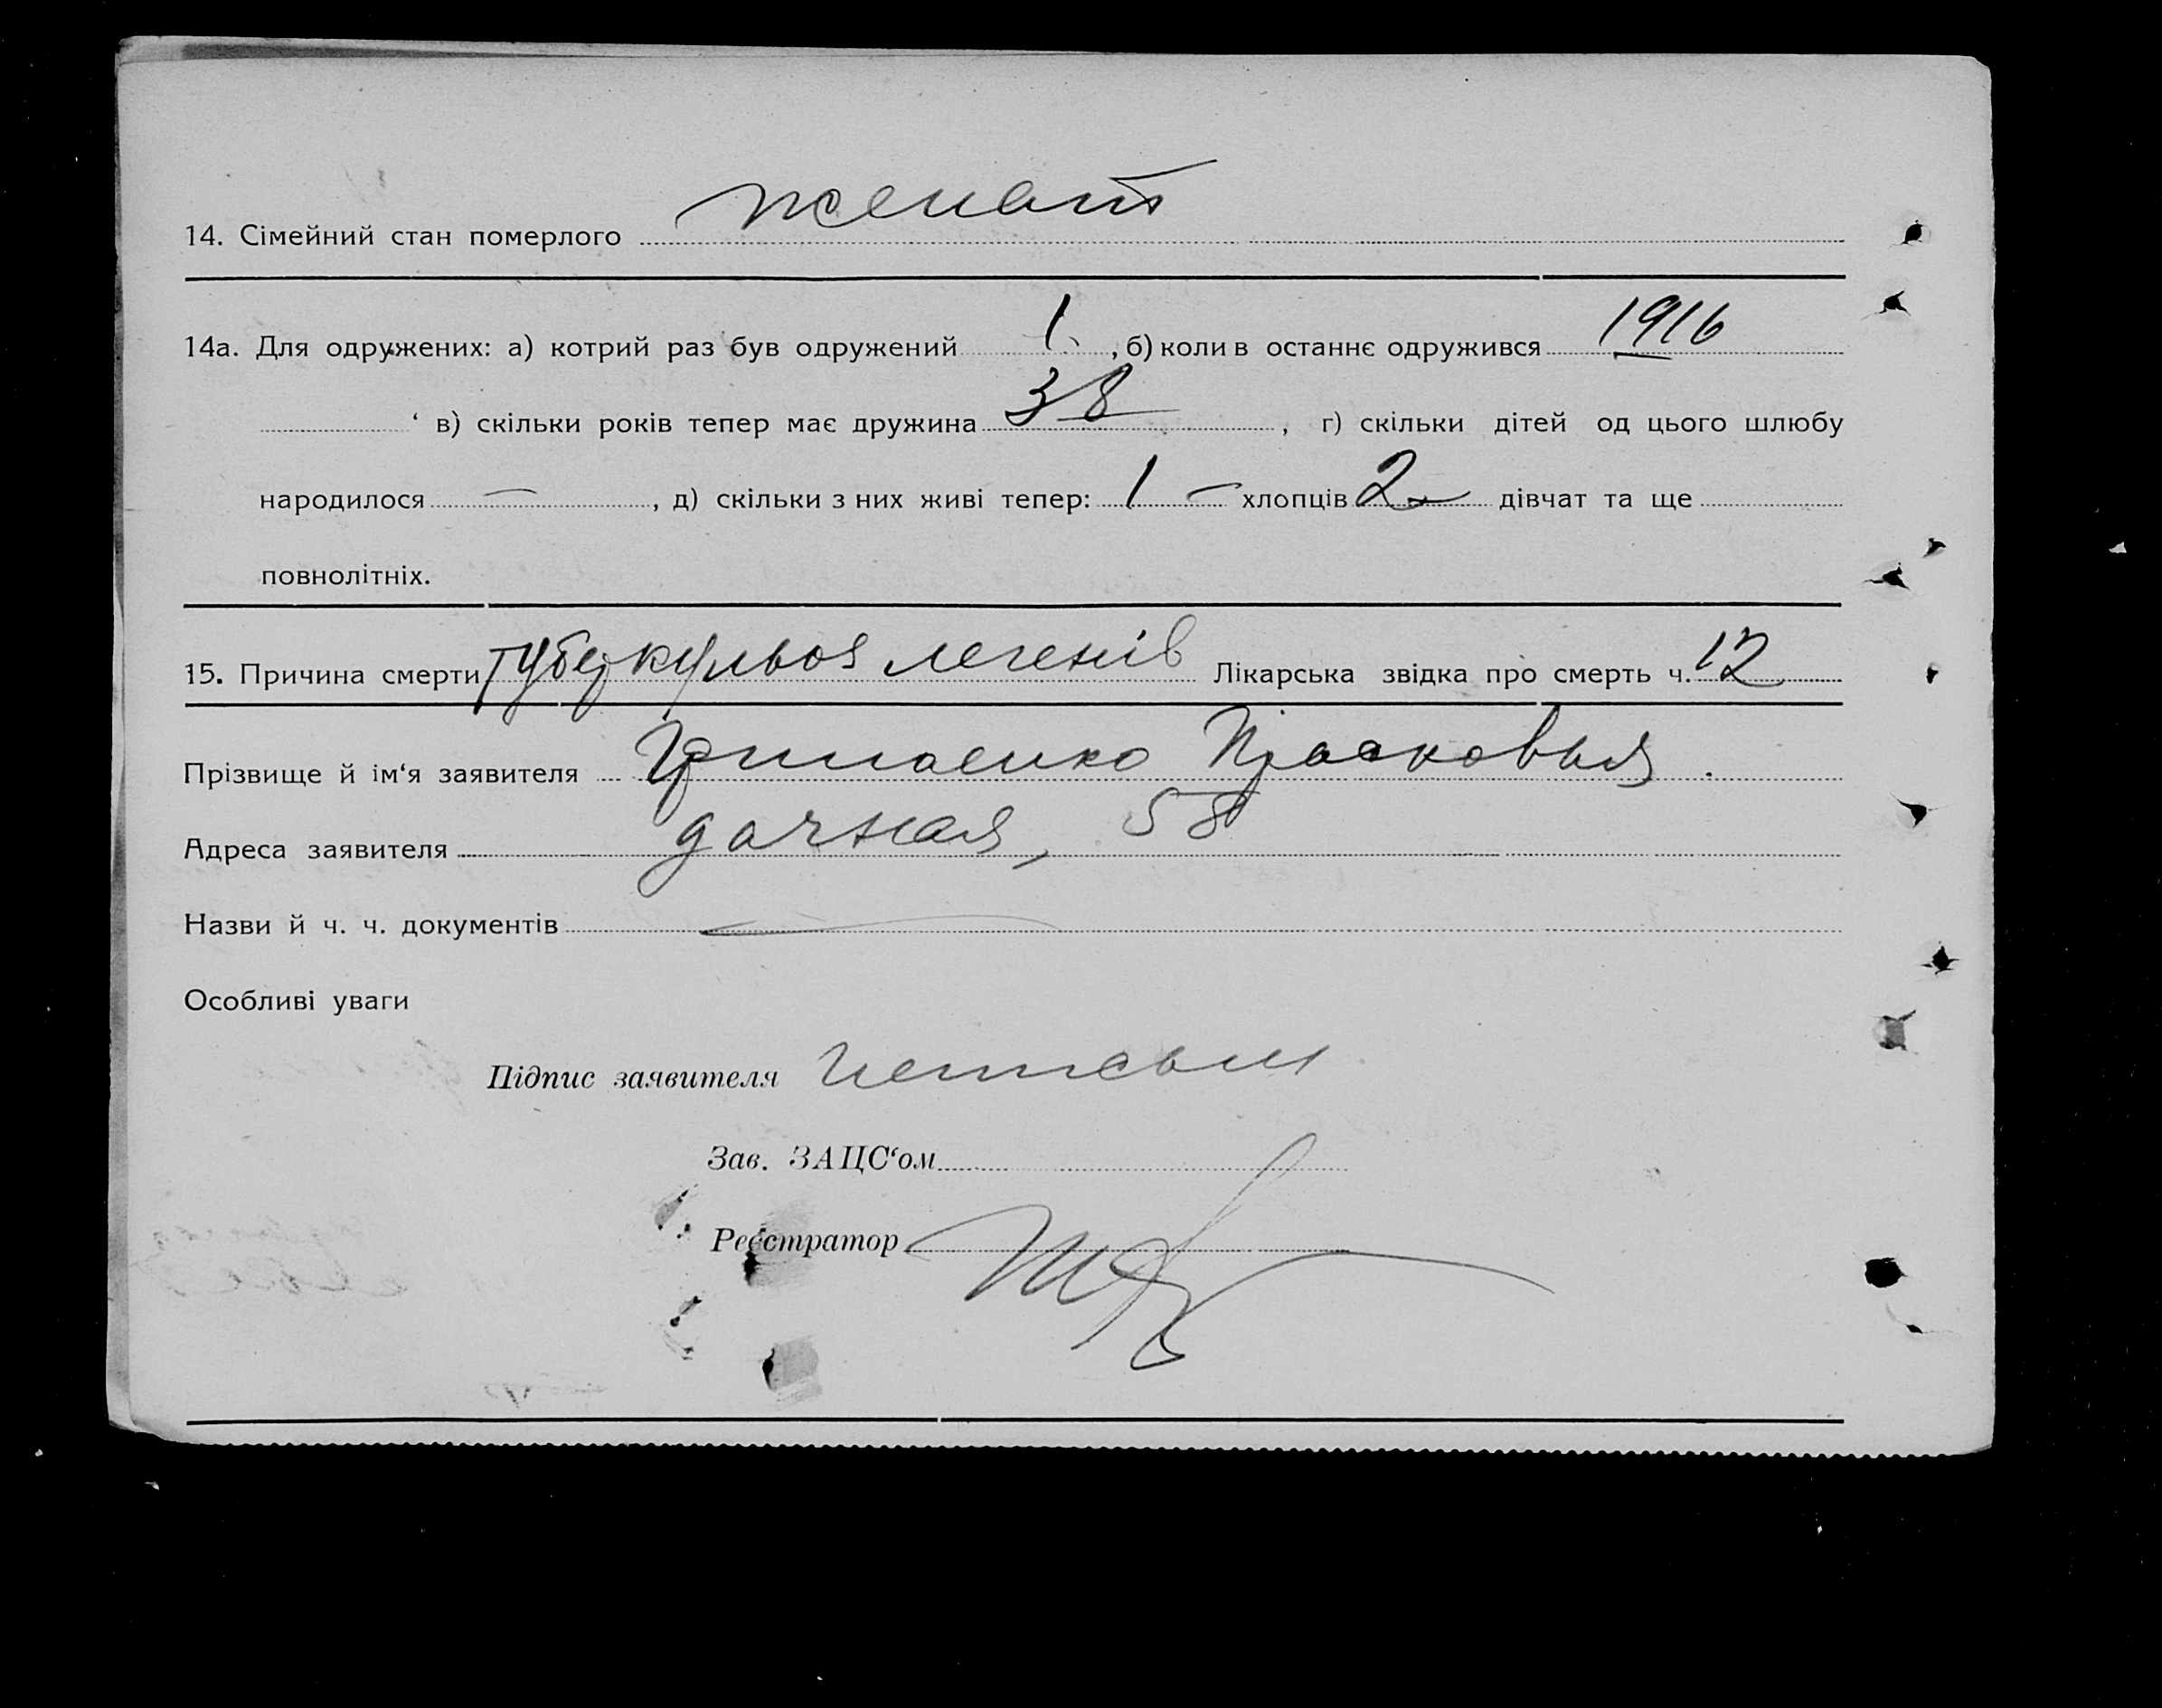 14. Сімейний стан померлого женат
14а. Для одружених: а) котрий раз був одружений 1, б) коли в останнє одружився 1916
в) скільки років тепер має дружина 38, г) скільки дітей од цього шлюбу
народилося —, д) скільки з них живі тепер: 1 — хлопців 2 дівчат та ще
повнолітніх.
15. Причина смерти туберкульоз легенів Лікарська звідка про смерть ч. 12
Прізвище й ім‘я заявителя Прасковья
Адреса заявителя дачная, 58
Назви й ч. ч. документів —
Особливі уваги
Підпис заявителя
Зав. ЗАЦС‘ом
Реєстратор